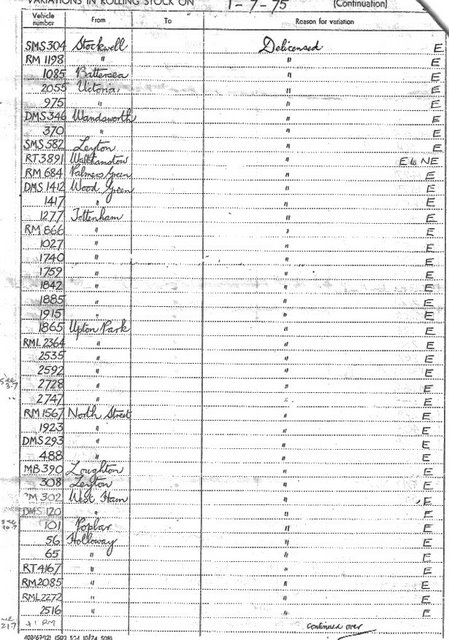 VARIATIONS IN ROLLING STOCK ON 1-7-75 (Continuation)
Vehicle number From To Reason for variation
SMS 304 Stockwell Delicensed E
RM 1198 " " E
1085 Battersea " E
2055 Victoria " E
975 " " E
DMS 346 Wandsworth " E
370 " " E
SMS 582 Leyton " E
RT 3891 Walthamstow " E to NE
RM 684 Palmers Green " E
DMS 1412 Wood Green " E
1417 " " E
1277 Tottenham " E
RM 866 " " E
1027 " " E
1740 " " E
1759 " " E
1842 " " E
1885 " " E
1915 " " E
1865 Upton Park " E
RML 2364 " " E
2535 " " E
2592 " " E
2728 " " E
2747 " " E
RM 1567 North Street " E
1923 " " E
DMS 293 " " E
488 " " E
MB 390 Loughton " E
308 Leyton " E
M 302 West Ham " E
DMS 120 " " E
101 Poplar " E
56 Holloway " E
65 " " E
RT 4167 " " E
RM 2085 " " E
RML 2272 " " E
2516 " " E
continued over